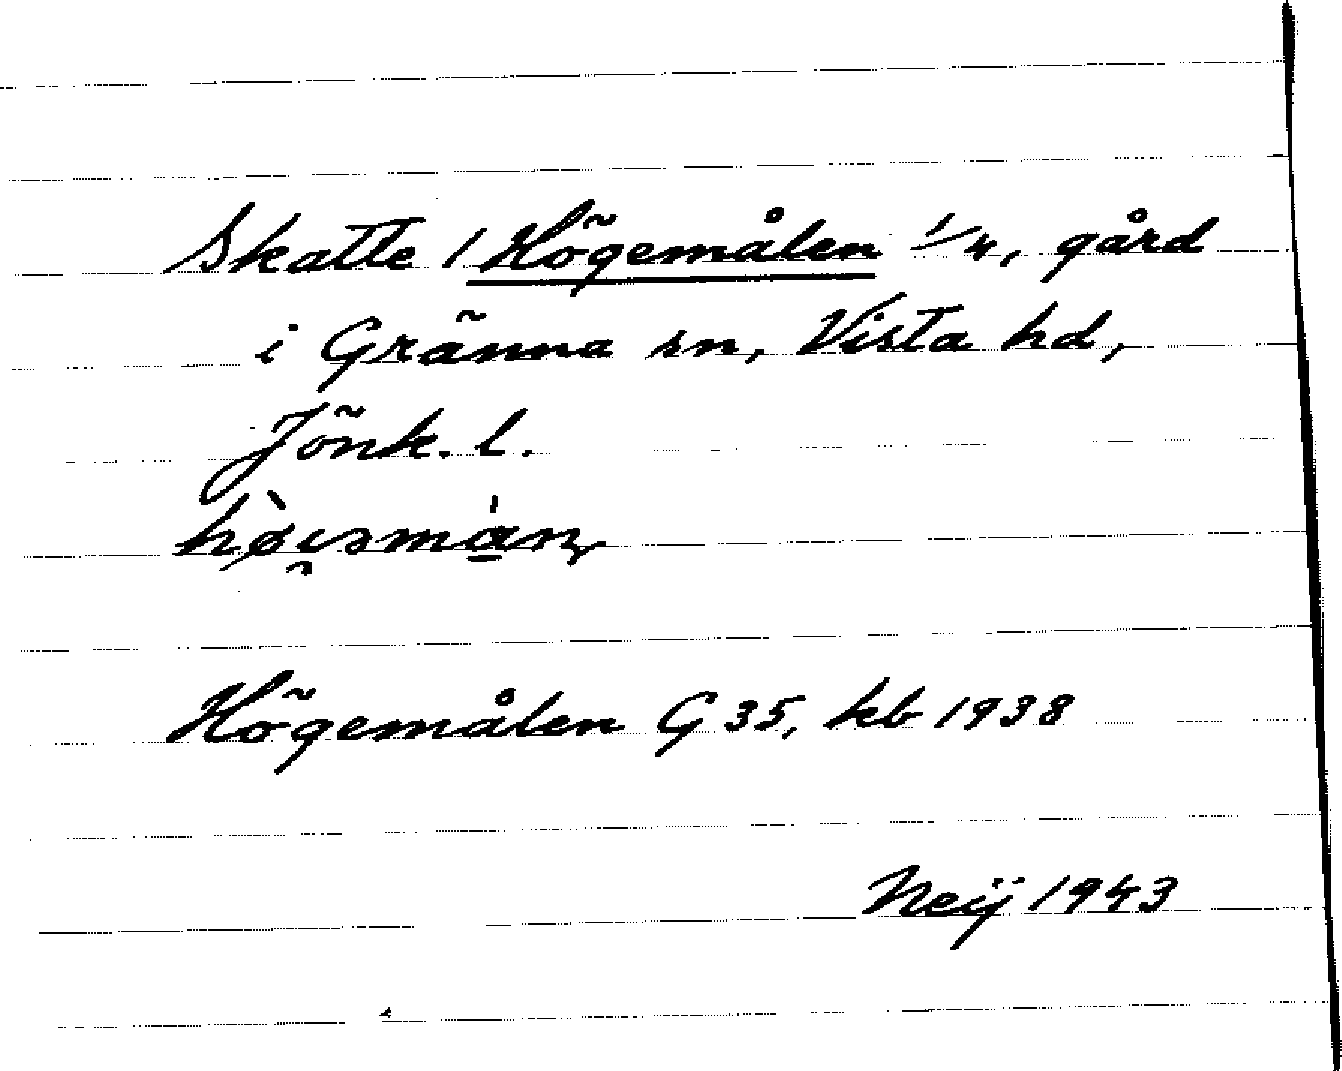 Skatte / Högemålen 1/4, gård
i Gränna sn, Vista hd,
Jönk. l.
Högemålen G 35, kb 1938
Neij 1943